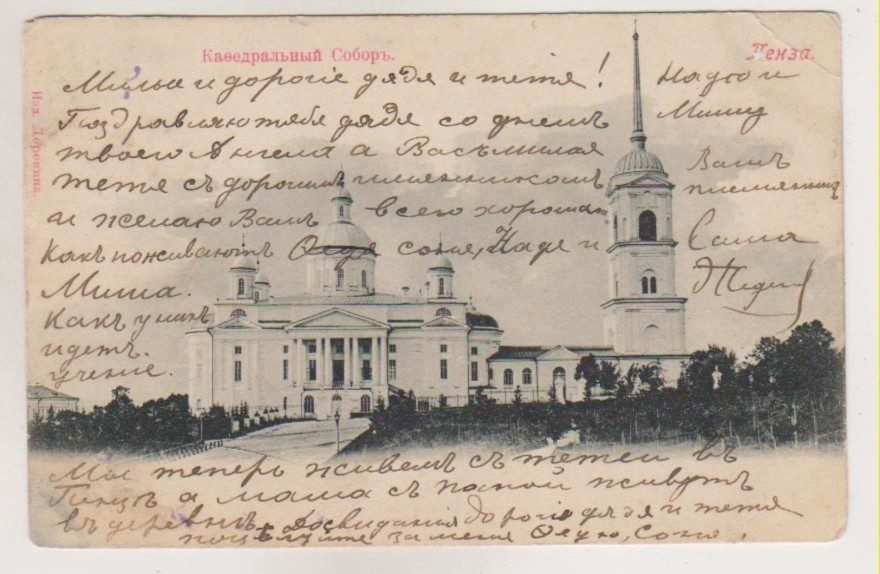 Каѳедральный Соборъ.
Пенза.
Изд. Доронина.
Милые и дорогіе дядя и тетя!
Поздравляю тебя дядя со днемъ
твоего Ангела а Васъ милая
тетя съ дорогимъ имянникомъ
и желаю Вамъ всего хорошаго
Какъ поживаютъ Оля Соня, Надя и
Миша.
Какъ у нихъ
идетъ
учение.
Мы теперь живемъ съ тетей въ
Пензѣ а мама съ папой живутъ
въ деревнѣ Досвидания дорогіе дядя и тетя
поцелуйте за меня Олю, Соню,
Надю и
Мишу
Вашъ
племянникъ
Саша